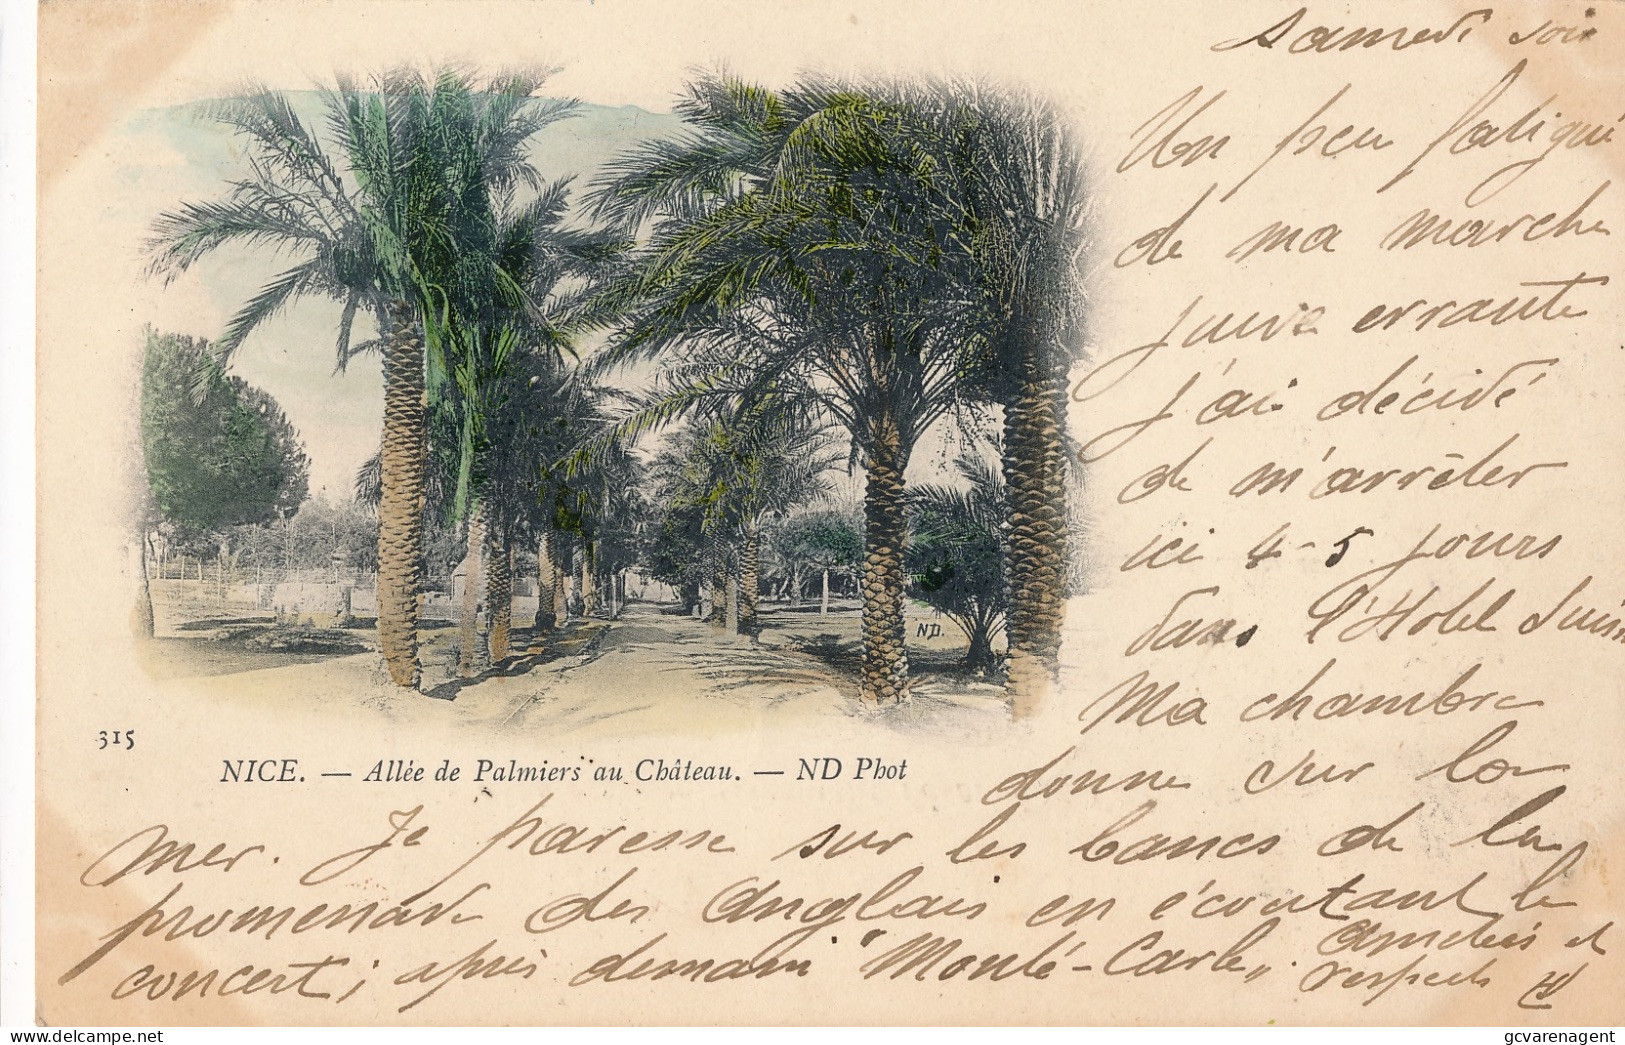 samedi soir
Un peu fatigué
de ma marche
juive errante
j'ai décidé
de m'arrêter
ici 4-5 jours
dans l'Hotel Suisse
Ma chambre
donne sur la
mer. Je paresse sur les bancs de la
promenade des Anglais en écoutant le
concert; après demain "Monté-Carlo". Amitiés et
respects
ND.
315
NICE. — Allée de Palmiers au Château. — ND Phot
delcampe.net
gcvarenagent